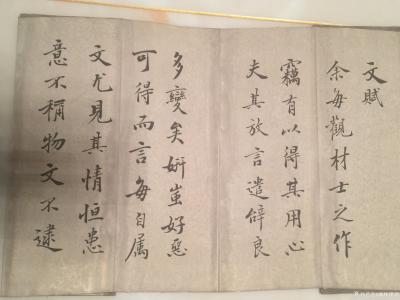 文赋
余每觀材士之作
竊有以得其用心
夫其放言遣辭良
多變矣妍蚩好惡
可得而言每自属
文尤見其情恒患
意不稱物文不逮